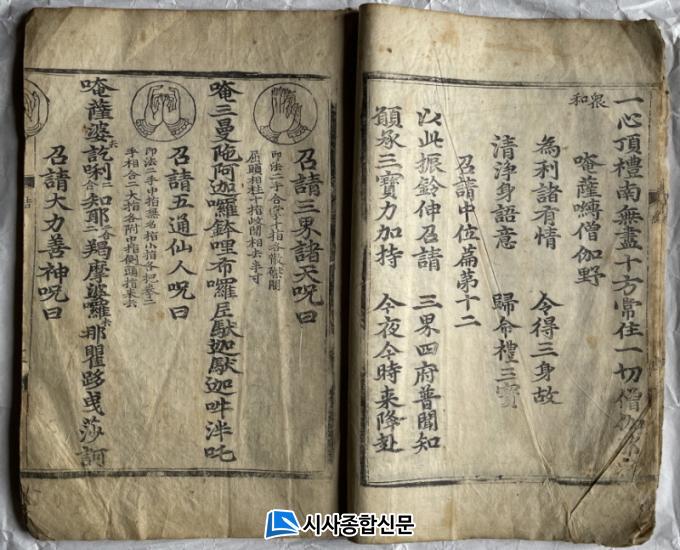 一心頂禮南無盡十方常住一切僧伽
衆和
唵薩嚩僧伽野
為利諸有情 令得三身故
清淨身語意 歸命禮三寶
召請中位篇第十二
以此振鈴伸召請 三界四府普聞知
願承三寶力加持 今夜今時来降赴
召請三界諸天呪曰
印法二手合掌十指各散磔開
屈頭相柱十指岐間相去半寸
唵三曼陁阿迦囉鉢哩布囉尼馱迦馱迦吽泮吒
召請五通仙人呪曰
印法二手中指無名指小指各把拳二
手相合二大指各附中指側頭指来去
唵薩婆訖唎二合知耶二合羯摩婆囉去那瞿跢曵莎訶
召請大力善神呪曰
시사종합신문